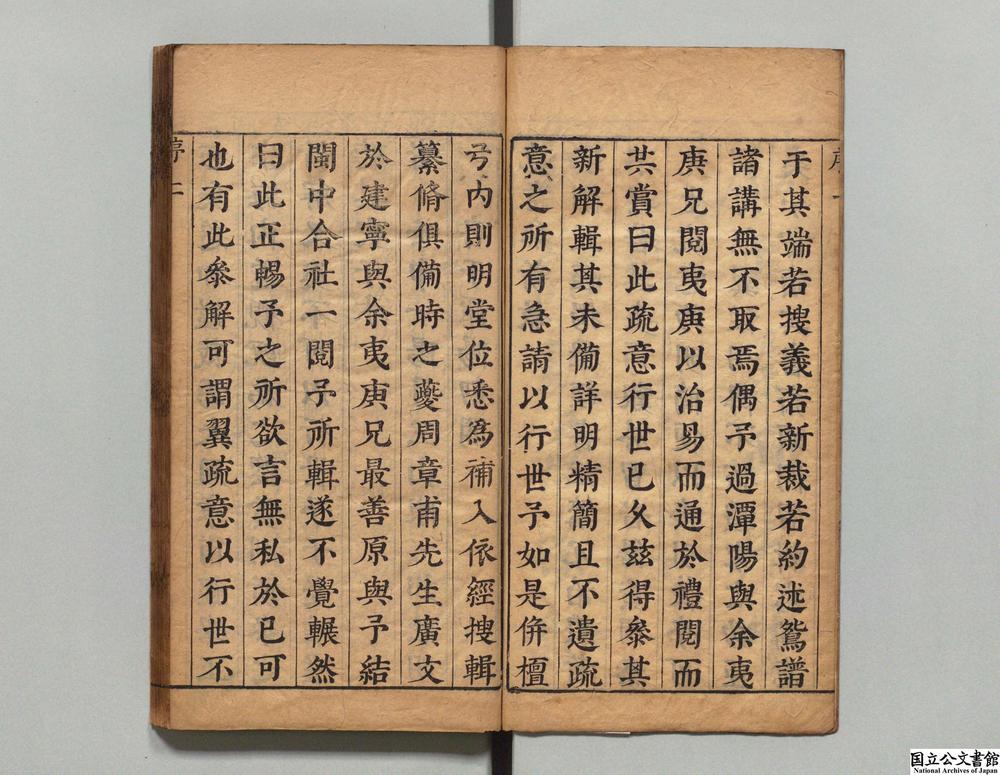 于其端若搜義若新裁若約述鴛譜
諸講無不取焉偶予過潭陽與余夷
庚兄閱夷庚以治易而通於禮閱而
共賞曰此疏意行世已久玆得叅其
新解輯其未備詳明精簡且不遺疏
意之所有急請以行世予如是倂檀
弓內則明堂位悉為補入依經搜輯
纂脩俱備時之夔周章甫先生廣文
於建寧與余夷庚兄最善原與予結
閩中合社一閱予所輯遂不覺輾然
曰此正暢予之所欲言無私於已可
也有此叅解可謂翼疏意以行世不
序二
国立公文書館
National Archives of Japan